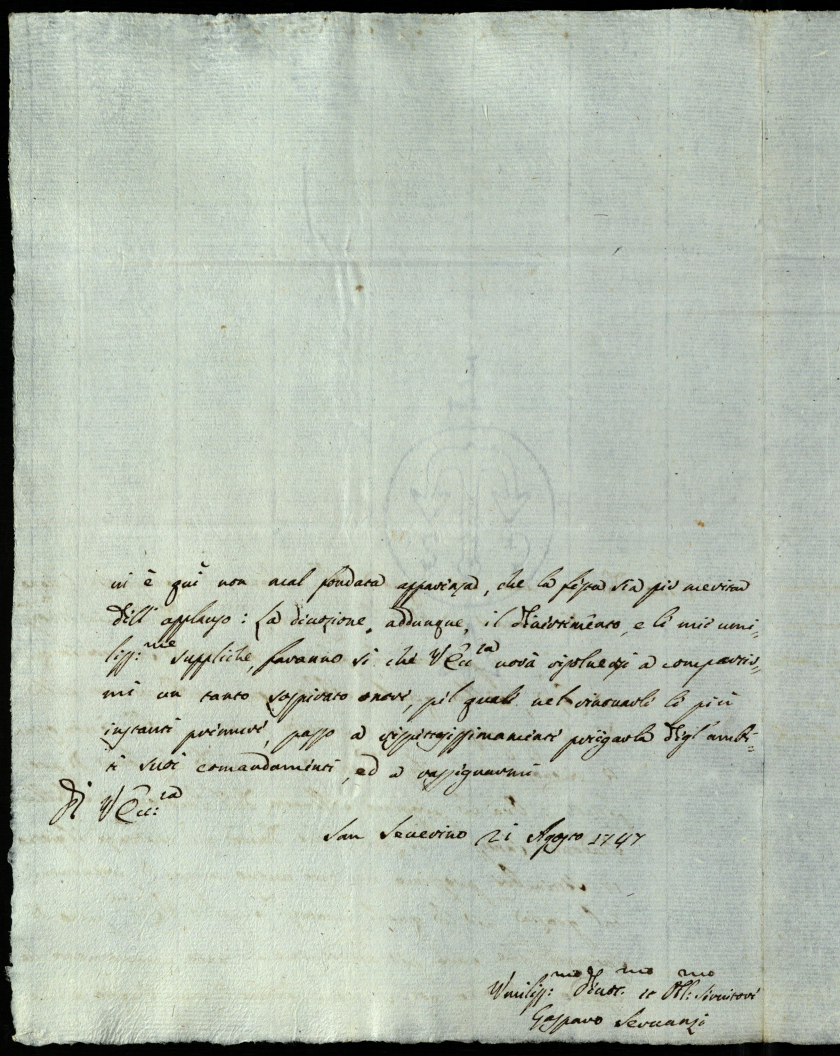 vi è quì non mal fondata apparenza, che la stessa sia più meritevo
dell'applauso: La divozione, addunque, il divertimento, e le mie umi-
liss:me suppliche, faranno sì che V Ecc:za vorà risolversi a compartir-
mi un tanto sospirato onore, pel quale nel rinovarle le più
instanti premure, passo a rispettosissimamente priegarla degl'ambi-
ti suoi comandamenti, ed a rassegnarmi
Di V Ecc:za
San Severino 21 Agosto 1747
Umiliss:mo Divot:mo et Obl:mo Servitore
Gasparo Servanzi